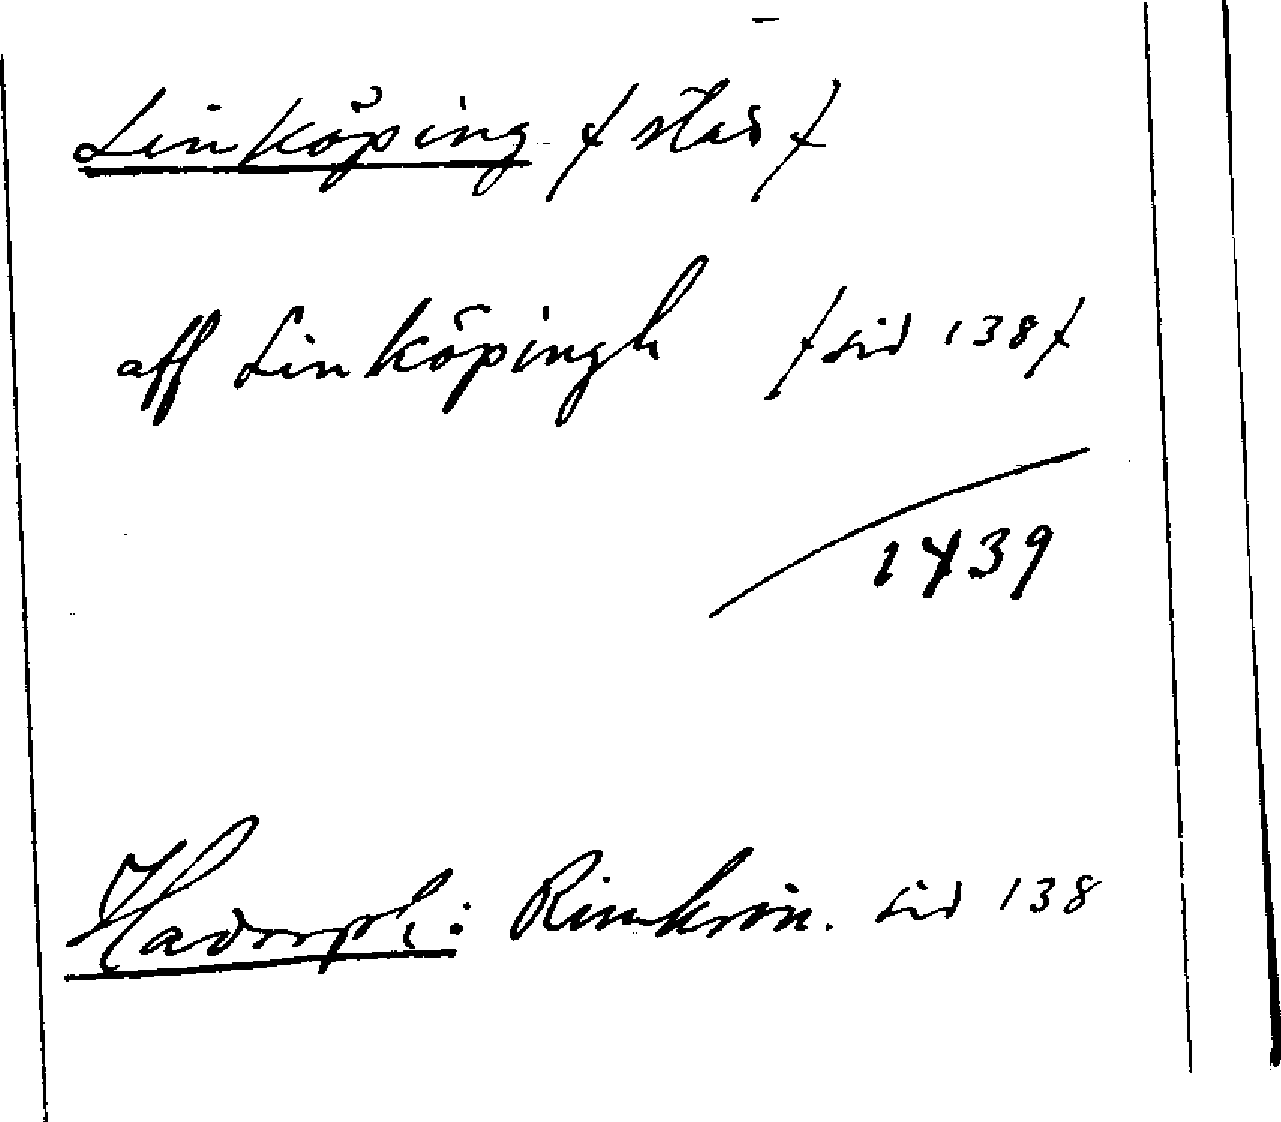 Linköping / stad /
aff Linköpingh / sid 138 /
1439
Hadorph: Rimkrön. sid 138